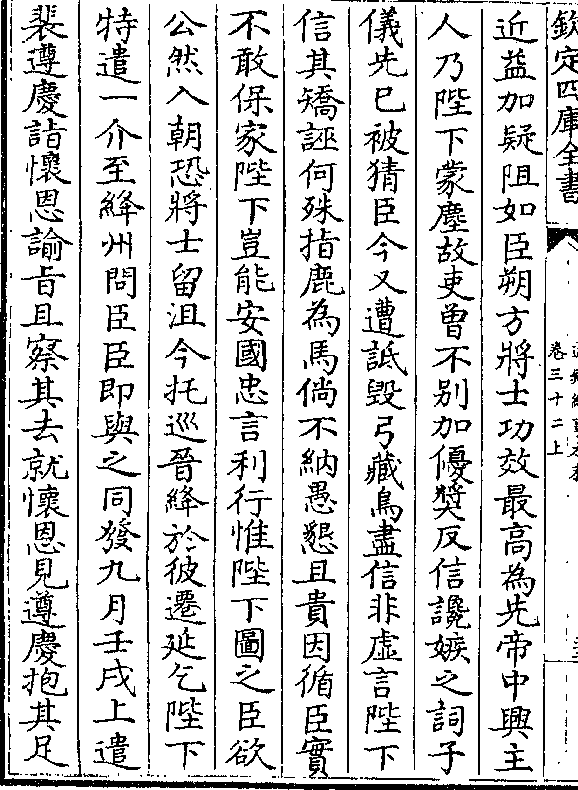 欽定四庫全書
卷三十二上
近益加疑阻如臣朔方將士功效最高為先帝中興主
人乃陛下蒙塵故吏曾不別加優獎反信讒嫉之詞子
儀先已被猜臣今又遭詆毀弓藏鳥盡信非虛言陛下
信其矯誣何殊指鹿為馬倘不納愚懇且貴因循臣實
不敢保家陛下豈能安國忠言利行惟陛下圖之臣欲
公然入朝恐將士留沮今托巡晉絳於彼遷延乞陛下
特遣一介至絳州問臣臣即與之同發九月壬戌上遣
裴遵慶詣懷恩諭旨且察其去就懷恩見遵慶抱其足